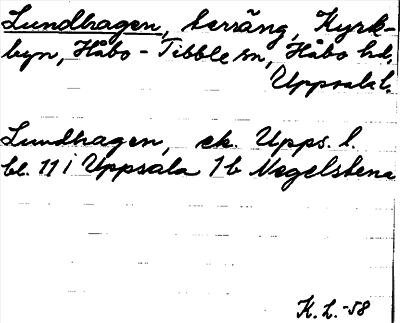 Lundhagen, terräng, Kyrk-
byn, Håbo-Tibble sn, Håbo hd,
Uppsala l.
Lundhagen, ek. Upps. l.
bl. 11 i Uppsala 1b Negelstena
K. L. -58